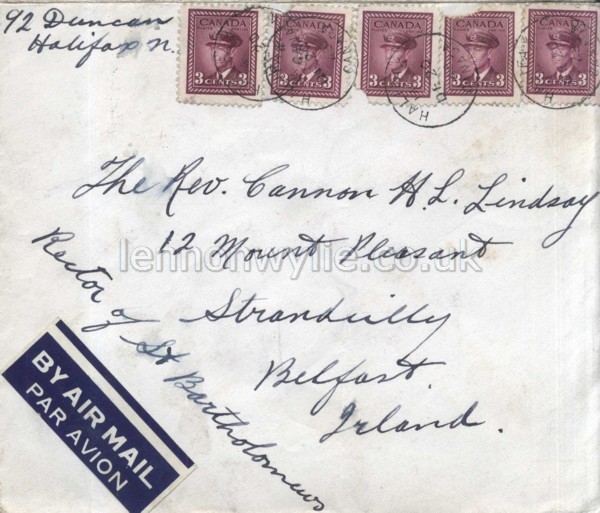 92 Duncan
Halifax N.
CANADA CANADA CANADA CANADA CANADA
3 CENTS 3 3 CENTS 3 3 CENTS 3 3 CENTS 3 3 CENTS 3
The Rev. Cannon H. L. Lindsay
12 Mount Pleasant
lennonwylie.co.uk
Strandilly
Belfast.
Irland.
Rector of St Bartholomews
BY AIR MAIL
PAR AVION